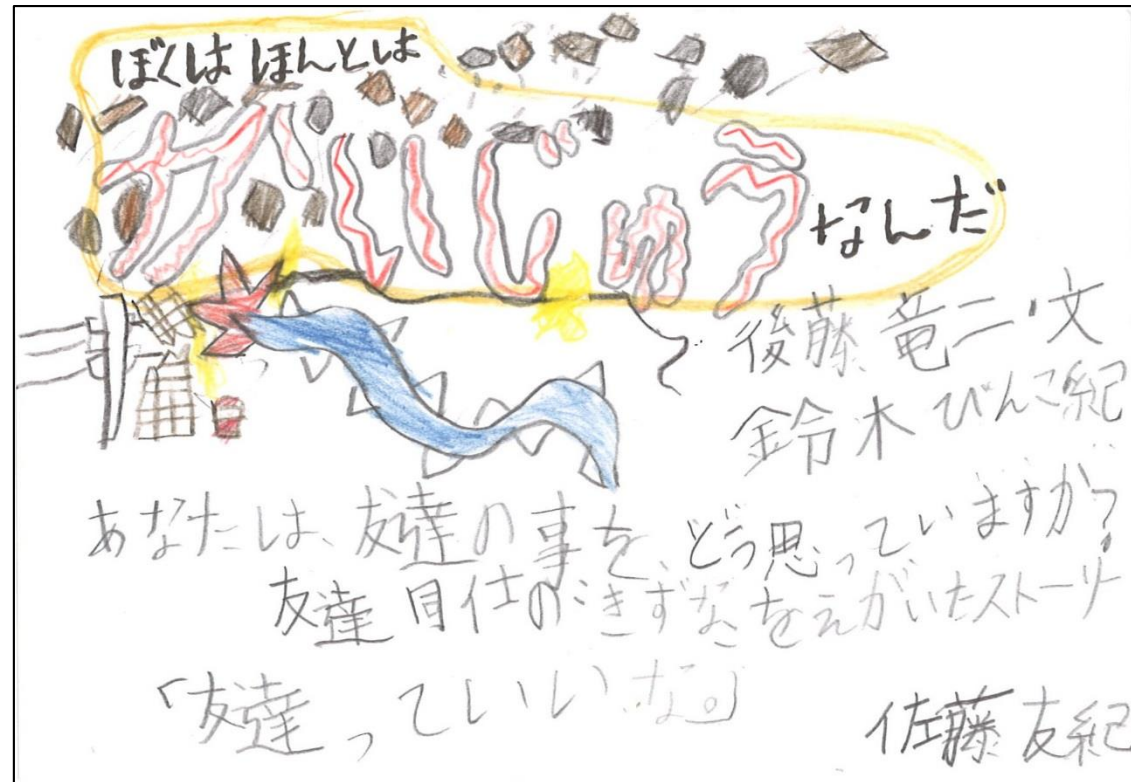 ぼくはほんとは
かいじゅう
なんだ
後藤竜二・文
鈴木びんこ紀
あなたは、友達の事を、どう思っていますか?
友達同仕のきずなをえがいたストーリー
「友達っていいな。」
佐藤友紀